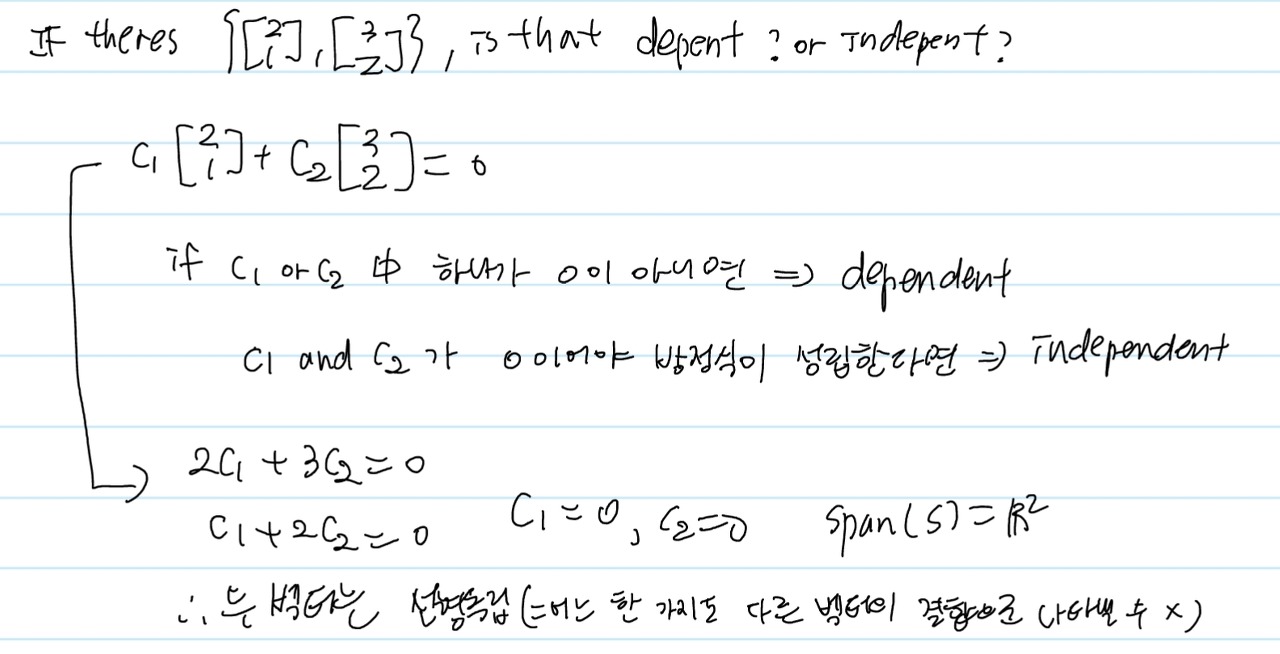 IF theres {[2 1], [3 2]}, is that depent? or Indepent?
C1 [2 1] + C2 [3 2] = 0
if C1 or C2 中 하나가 0이 아니면 => dependent
C1 and C2가 0이어야 방정식이 성립한다면 => independent
2C1 + 3C2 = 0
C1 + 2C2 = 0 C1 = 0, C2 = 0 span(S) = ℝ²
∴ 두 벡터는 선형독립 (=어느 한 가지도 다른 벡터의 결합으로 나타낼 수 x)